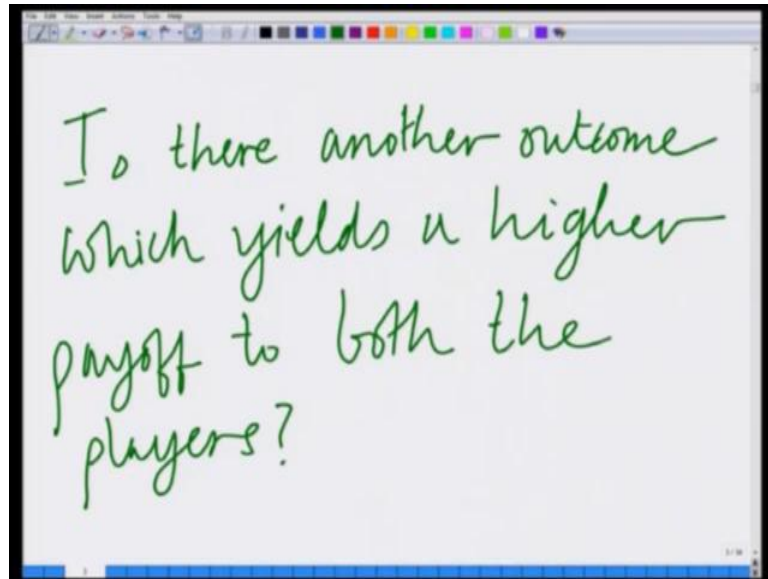 File Edit View Insert Actions Tools Help
Is there another outcome
which yields a higher
payoff to both the
players?